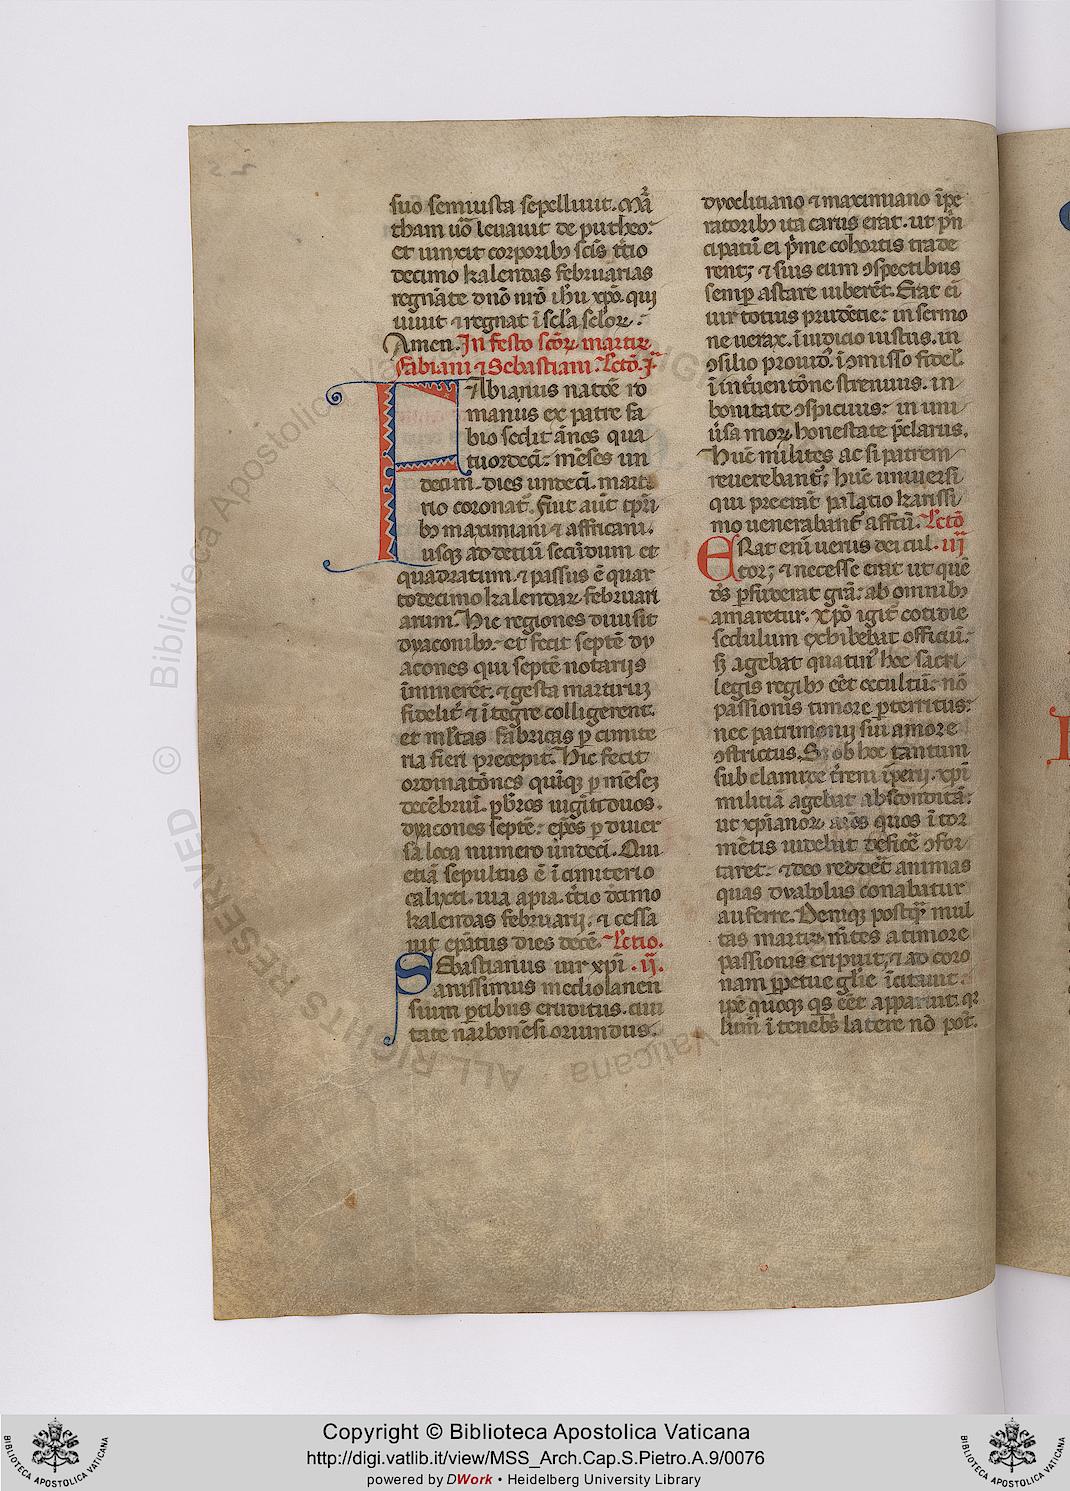 suo semiusta sepelliuit. Mar̃
tham ũo leuauit de putheo:
et iunxit corporibꝫ sc̃is t̃cio
decimo kalendas februarias
regnãte dño nr̃o ihũ xp̃o. qui
uiuit ⁊ regnat ĩ scl̃a scloꝝ.
Amen. In festo sc̃oꝝ martiꝝ
Fabiani ⁊ Sebastiani. Lect̃o. j.ᵃ
FAbianus natiõe ro
manus ex patre fa
bio sedit ãnos qua
tuordecĩ. mẽses un
decim. dies undecĩ. marti
rio coronat᷒. Fuit aũt tp̃ri
bꝫ maximiani ⁊ affricani.
usqꝫ ad deciũ secũdum et
quadratum. ⁊ passus ẽ quar
todecimo kalendaꝝ februari
arum. Hic regiones diuisit
dyaconibꝫ. et fecit septẽ dy
acones qui septẽ notarijs
ĩminerẽt. ⁊ gesta martirum
fidelit̃ ⁊ ĩtegre colligerent.
et ml̃tas fabricas ꝑ cimite
ria fieri precepit. Hic fecit
ordinatõnes quĩqꝫ ꝑ mẽsez
decẽbriũ. pr̃bros uigĩti duos.
dyacones septẽ. ep̃os ꝑ diuer
sa loca numero ũndecĩ. Qui
etiã sepultus ẽ ĩ cimiterio
calixti. uia apia. t̃cio decimo
kalendas februarij. ⁊ cessa
uit ep̃atus dies decẽ. Lectio.
SEbastianus uir xp̃i .ij.
anissimus mediolanen
sium ꝑtibus eruditus. ciui
tate narbonẽsi oriundus.
dyoclitiano ⁊ maximiano ĩpe
ratoribꝫ ita carus erat. ut p̃n
cipatũ ei p̃me cohortis trade
rent; ⁊ suis eum ↄspectibus
semꝑ astare iuberẽt. Erat eĩ
uir totius prudẽtie: in sermo
ne uerax. ĩ iudicio iustus. in
ↄsilio prouid᷒. ĩ ↄmisso fidel᷒.
ĩ int̃uentõne strenuus. in
bonitate ↄspicuus: in uni
ũsa moꝝ honestate p̃clarus.
Hũc milites ac si patrem
reuerebant᷒; hũc uniuersi
qui preerãt palatio karissi
mo uenerabant᷒ affcũ. Lect̃o
ERat eni uerus dei cul .iij
tor; ⁊ necesse erat ut quẽ
d̃s ꝑfuderat gr̃a: ab omnibꝫ
amaretur. Xp̃o igit̃ cotidie
sedulum exhibebat officiũ:
sꝫ agebat quatin᷒ hoc sacri
legis regibꝫ eẽt occultũ: nõ
passionis timore ꝑterritus:
nec patrimonij sui amore
ↄstrictus. Sꝫ ob hoc tantum
sub clamide t̃reni ĩperij. xp̃i
militiã agebat abscondităm:
ut xp̃ianoꝝ aĩos quos ĩ tor
mẽtis uidebat deficẽ ↄfor
taret: ⁊ deo reddẽt animas
quas dyabolus conabatur
auferre. Deniqꝫ postq̃ mul
tas martiꝝ mẽtes a timore
passionis eripuit, ⁊ ad coro
nam ꝑpetue glĩe ĩcitauit.
ip̃e quoqꝫ qs eẽt apparuit. qꝛ
lum̃ ĩ tenebr̃s latere nõ pot̃.
Copyright © Biblioteca Apostolica Vaticana
http://digi.vatlib.it/view/MSS_Arch.Cap.S.Pietro.A.9/0076
powered by DWork • Heidelberg University Library